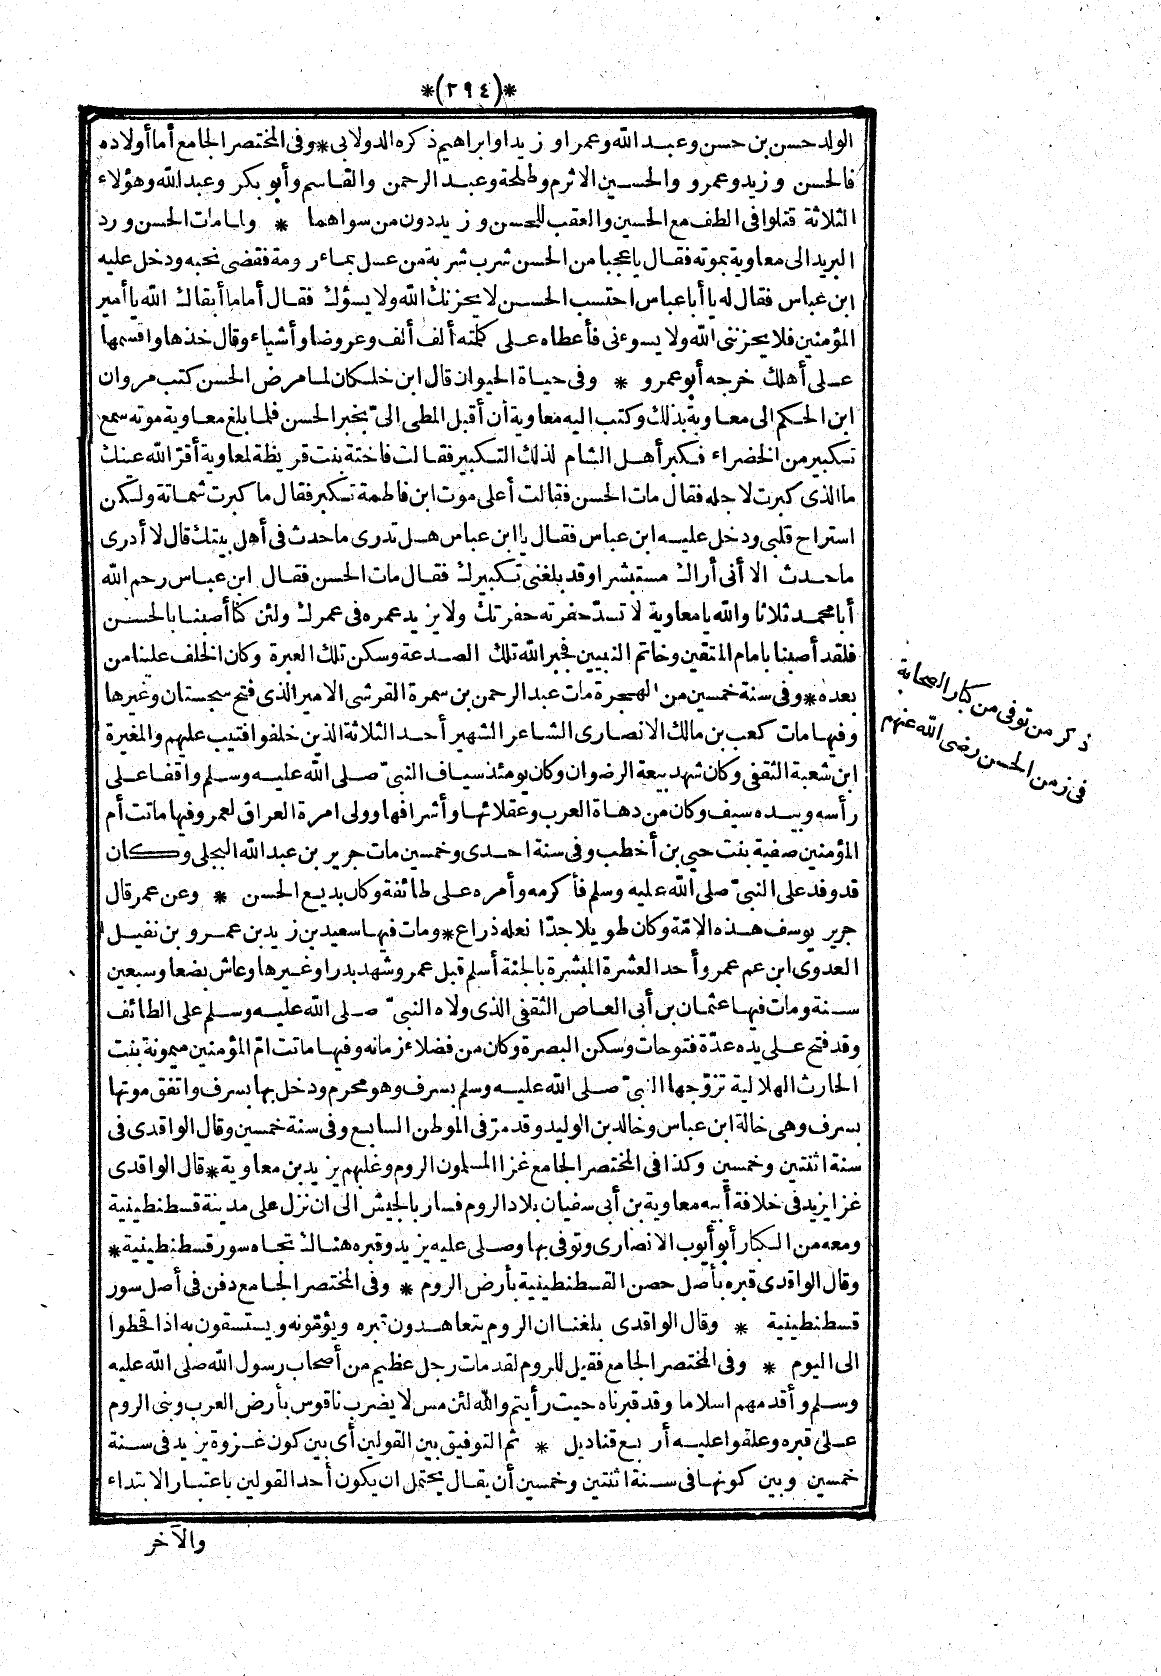 *(٢٩٤)*
الولد حسن بن حسن وعبد الله وعمرا وزيدا وابراهيم ذكره الدولابى * وفى المختصر الجامع أما أولاده
فالحسن وزيد وعمرو والحسين الاثرم وطلحة وعبد الرحمن والقاسم وأبو بكر وعبد الله وهؤلاء
الثلاثة قتلوا فى الطف مع الحسين والعقب للحسن وزيد دون من سواهما * ولما مات الحسن ورد
البريد الى معاوية بموته فقال يا عجبا من الحسن شرب شربة من عسل بماء رومة فقضى نحبه ودخل عليه
ابن عباس فقال له يا أبا عباس احتسب الحسن لا يحزنك الله ولا يسؤك فقال أما ما أبقاك الله يا أمير
المؤمنين فلا يحزننى الله ولا يسوءنى فأعطاه على كلمته ألف ألف وعروضا وأشياء وقال خذها واقسمها
على أهلك خرجه أبو عمرو * وفى حياة الحيوان قال ابن خلكان لما مرض الحسن كتب مروان
ابن الحكم الى معاوية بذلك وكتب اليه معاوية أن أقبل المطى الىّ بخبر الحسن فلما بلغ معاوية موته سمع
تكبير من الخضراء فكبر أهل الشام لذلك التكبير فقالت فاختة بنت قريظة لمعاوية أقر الله عينك
ما الذى كبرت لاجله فقال مات الحسن فقالت أعلى موت ابن فاطمة تكبر فقال ما كبرت شماتة ولكن
استراح قلبى ودخل عليه ابن عباس فقال يا ابن عباس هل تدرى ما حدث فى أهل بيتك قال لا أدرى
ما حدث الا أنى أراك مستبشرا وقد بلغنى تكبيرك فقال مات الحسن فقال ابن عباس رحم الله
أبا محمد ثلاثا والله يا معاوية لا تسدّ حفرته حفرتك ولا يزيد عمره فى عمرك ولئن كنا أصبنا بالحسن
فلقد أصبنا بامام المتقين وخاتم النبيين فجبر الله تلك الصدعة وسكن تلك العبرة وكان الخلف علينا من
بعده * وفى سنة خمسين من الهجرة مات عبد الرحمن بن سمرة القرشى الامير الذى فتح سجستان وغيرها
وفيها مات كعب بن مالك الانصارى الشاعر الشهير أحد الثلاثة الذين خلفوا فتيب عليهم والمغيرة
ابن شعبة الثقفى وكان شهد بيعة الرضوان وكان يومئذ سياف النبىّ صلى الله عليه وسلم واقفا على
رأسه وبيده سيف وكان من دهاة العرب وعقلائها وأشرافها وولى امرة العراق لعمر وفيها ماتت أم
المؤمنين صفية بنت حيى بن أخطب وفى سنة احدى وخمسين مات جرير بن عبد الله البجلى وكان
قد وفد على النبىّ صلى الله عليه وسلم فأكرمه وأمره على طائفة وكان بديع الحسن * وعن عمر قال
جرير يوسف هذه الامّة وكان طويلا جدّا نعله ذراع * ومات فيها سعيد بن زيد بن عمرو بن نفيل
العدوى ابن عم عمر وأحد العشرة المبشرة بالجنة أسلم قبل عمر وشهد بدرا وغيرها وعاش بضعا وسبعين
سنة ومات فيها عثمان بن أبى العاص الثقفى الذى ولاه النبىّ صلى الله عليه وسلم على الطائف
وقد فتح على يده عدّة فتوحات وسكن البصرة وكان من فضلاء زمانه وفيها ماتت امّ المؤمنين ميمونة بنت
الحارث الهلالية تزوّجها النبىّ صلى الله عليه وسلم بسرف وهو محرم ودخل بها بسرف واتفق موتها
بسرف وهى خالة ابن عباس وخالد بن الوليد وقد مرّ فى الموطن السابع وفى سنة خمسين وقال الواقدى فى
سنة اثنتين وخمسين وكذا فى المختصر الجامع غزا المسلمون الروم وعليهم يزيد بن معاوية * قال الواقدى
غزا يزيد فى خلافة أبيه معاوية بن أبى سفيان بلاد الروم فسار بالجيش الى ان نزل على مدينة قسطنطينية
ومعه من الكبار أبو أيوب الانصارى وتوفى بها وصلى عليه يزيد وقبره هنالك تجاه سور قسطنطينية *
وقال الواقدى قبره بأصل حصن القسطنطينية بأرض الروم * وفى المختصر الجامع دفن فى أصل سور
قسطنطينية * وقال الواقدى بلغنا ان الروم يتعاهدون قبره ويؤمّونه ويستسقون به اذا قحطوا
الى اليوم * وفى المختصر الجامع فقيل للروم لقد مات رجل عظيم من أصحاب رسول الله صلى الله عليه
وسلم وأقدمهم اسلاما وقد قبرناه حيث رأيتم والله لئن مس لا يضرب ناقوس بأرض العرب وبنى الروم
على قبره وعلقوا عليه أربع قناديل * ثم التوفيق بين القولين أى بين كون غزوة يزيد فى سنة
خمسين وبين كونها فى سنة اثنتين وخمسين أن يقال يحتمل ان يكون أحد القولين باعتبار الابتداء
والآخر
ذكر من توفى من كبار الصحابة
فى زمن الحسن رضى الله عنهم